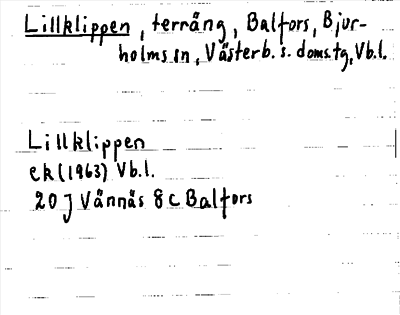 Lillklippen, terräng, Balfors, Bjur-
holms sn, Västerb. s. doms.tg, Vb.l.
Lillklippen
ek (1963) Vb.l.
20 J Vännäs 8 c Balfors